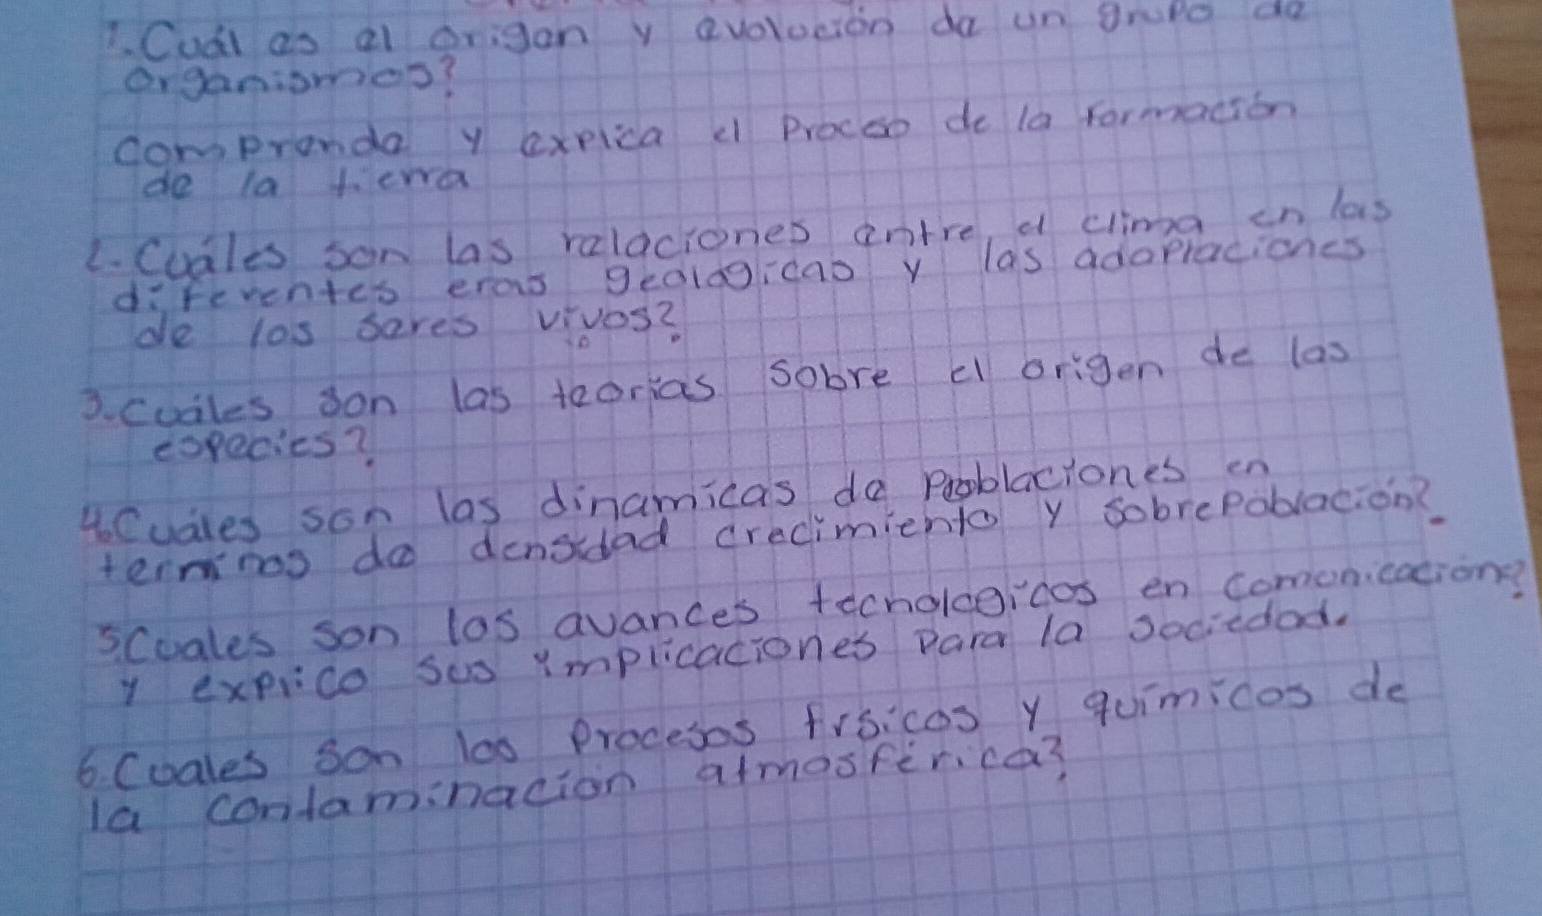 1. Cuál es el origen y evolución de un grupo de
organismos?
comprende y explica el proceso de la formación
de la tierra
2. Cuáles son las relaciones entre el clima en las
diferentes eras geologicas y las adaptaciones
de los seres vivos?
3. cuáles son las teorias sobre el origen de las
especies?
4. Cuáles son las dinamicas de poblaciones en
terminos de densidad crecimiento y sobrepoblación?
5 Cuales son los avances tecnologicos en comonicación?
y explico sus implicaciones para la sociedad.
6. Cuales son los procesos fisicos y quimicos de
la contaminacion atmosférica?